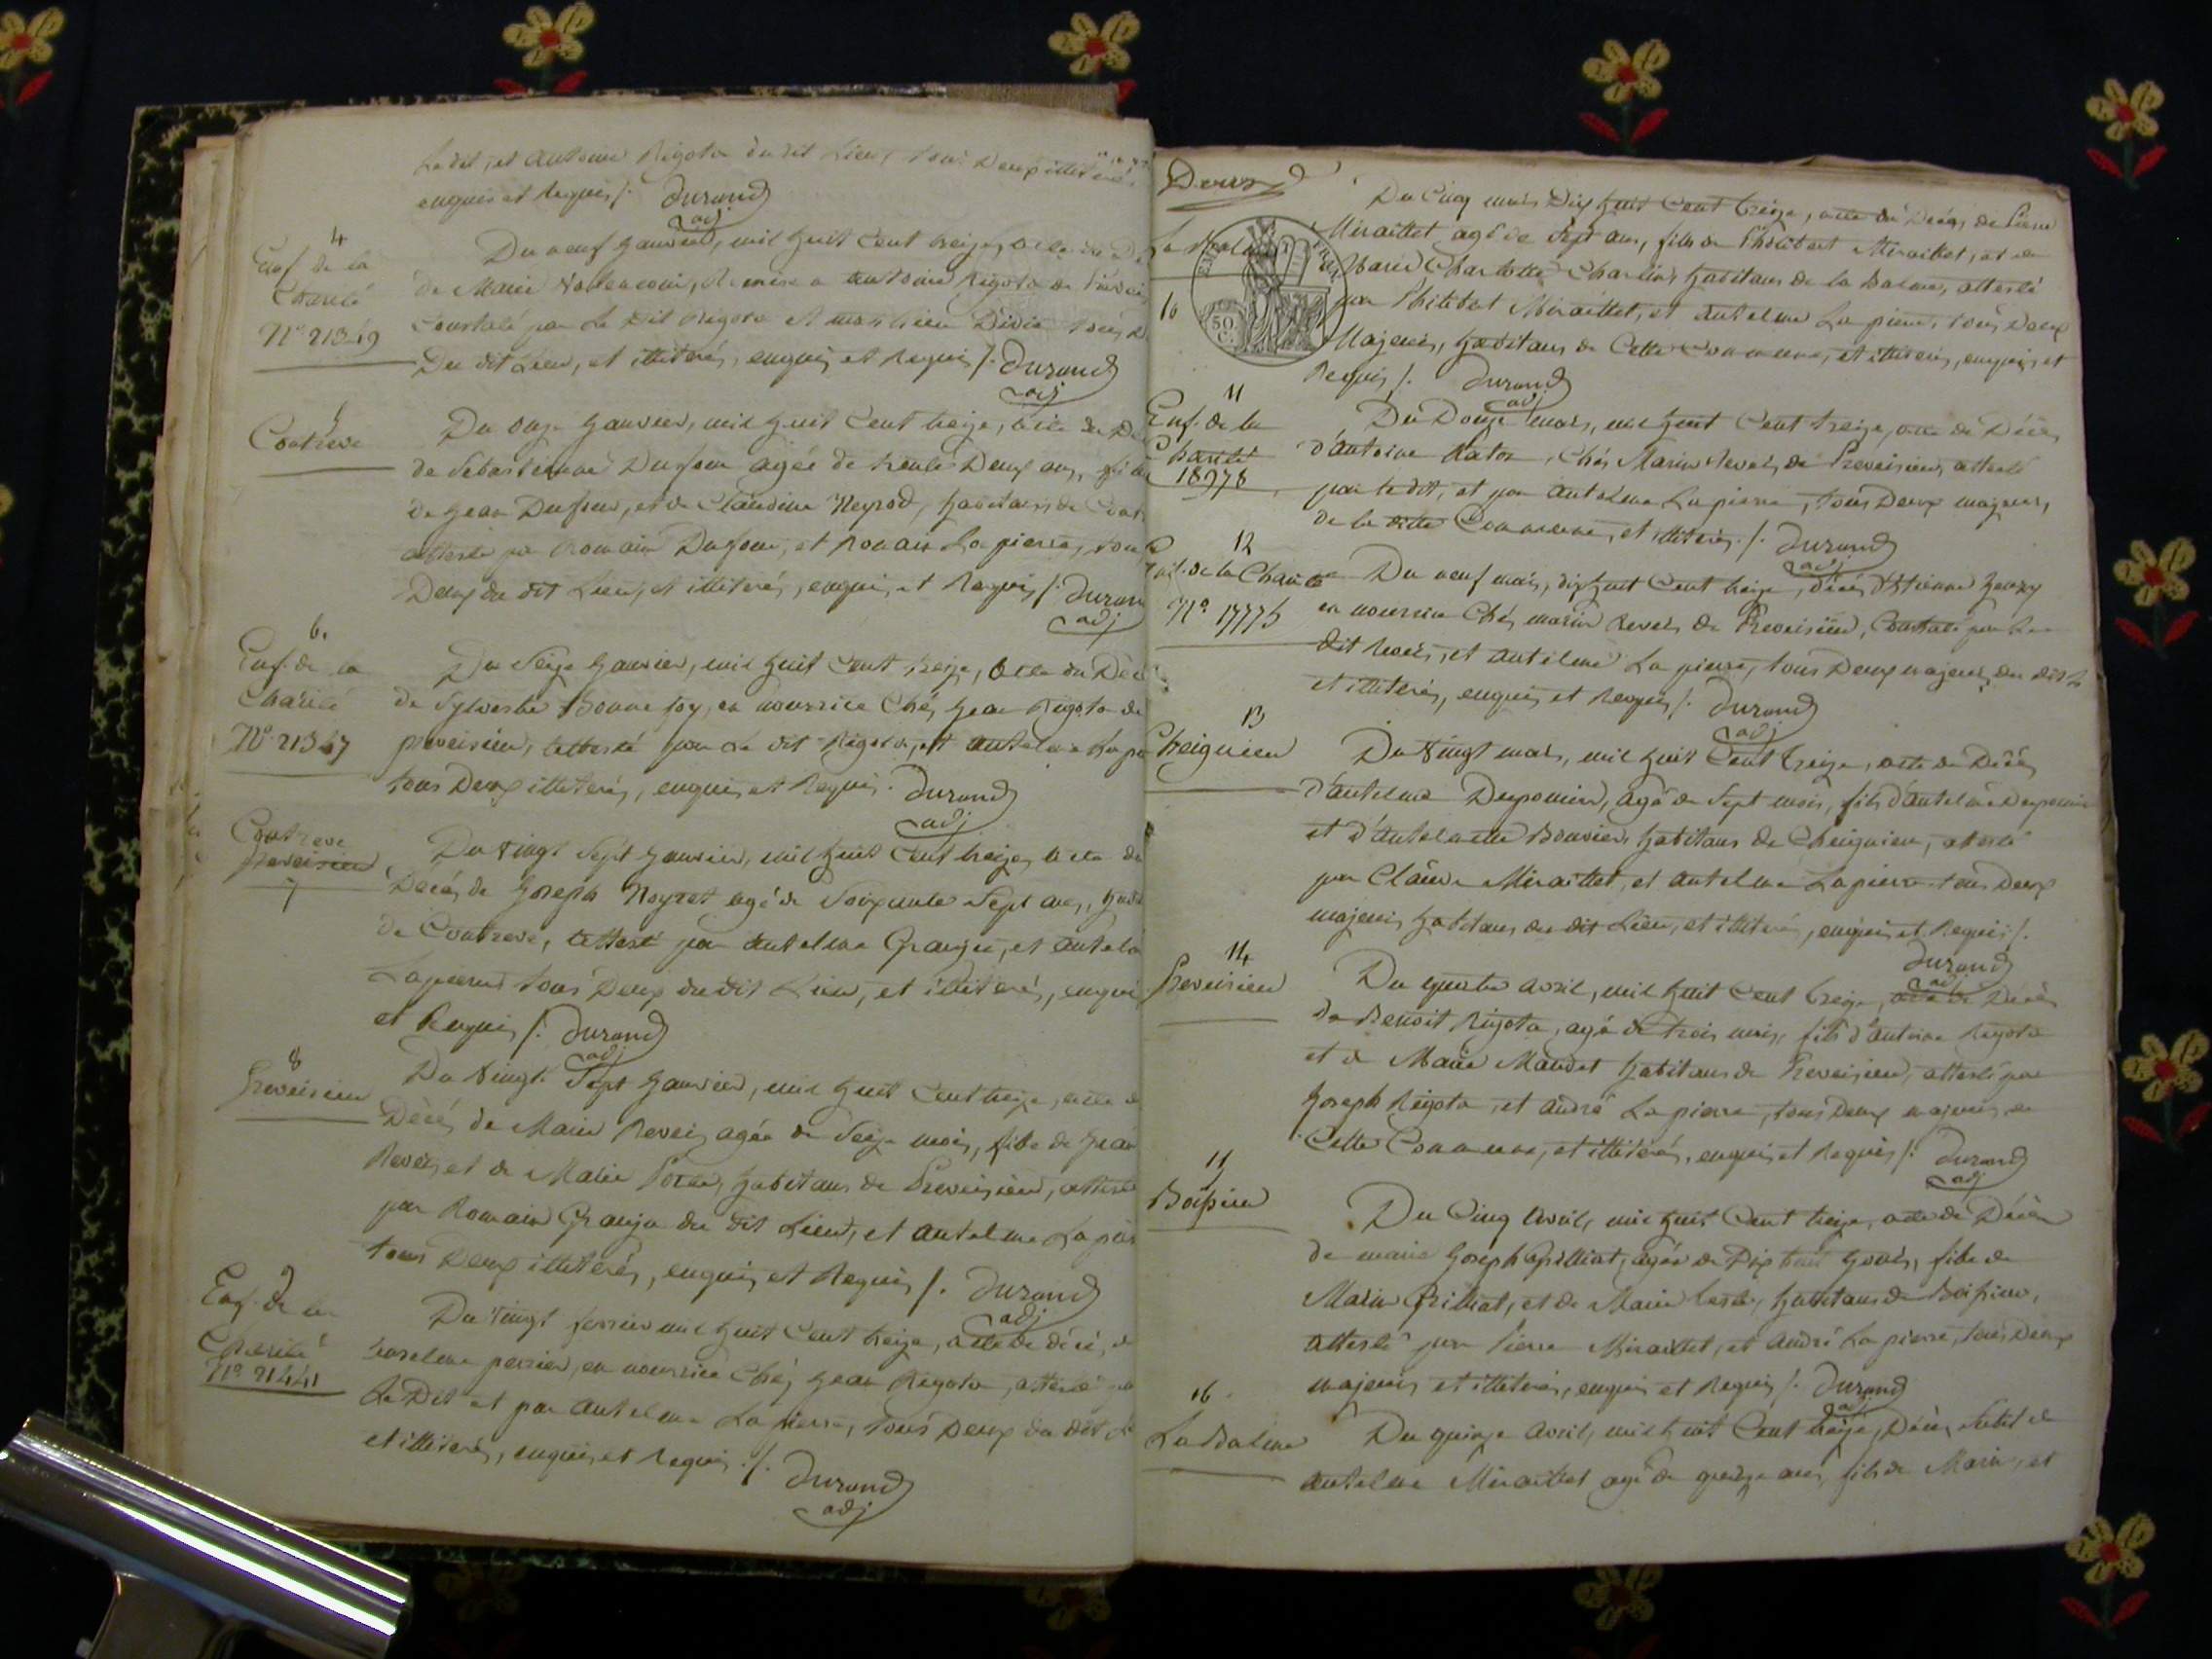 Le dit, et Antoine Rigota du dit Lieu, tous Deux illiterés
enquis et Requis /. Durand
adj
4
Enf. de la
Charité
N° 21349
Du neuf Janvier, mil huit Cent treize, acte de
de Marie
Antoine Rigota de
Constaté par Le dit Rigota et tous
Du dit Lieu, et illiterés, enquis et Requis /. Durand
adj
5
Contreve
Du onze Janvier, mil huit Cent treize, acte de
de Sebastienne Dufour agée de trente Deux ans, fille
de Jean Dufour, et de Claudine Neyrod, habitans de
attesté par Romain Dufour, et Romain La pierre, tous
Deux du dit Lieu, et illiterés, enquis et Requis /. Durand
adj
6.
Enf. de la
Charité
N° 21347
Du Seize Janvier, mil huit Cent treize, acte du Décè
de Sylvestre Bonnefoy, en nourrice Chés Jean Rigota de
preveisieu, attesté par Le dit Rigota, et Antelme La pi
tous Deux illiterés, enquis et Requis. Durand
adj
Contreve
preveisieu
7
Du Vingt Sept Janvier, mil huit Cent treize, acte du
Décés de Joseph Neyret agé de Soixante Sept ans, habi
de Contreve, attesté par Antelme Granger, et Antelm
Lapierre tous Deux du dit Lieu, et illiterés, enquis
et Requis /. Durand
adj
8
Preveisieu
Du Vingt Sept Janvier, mil huit Cent treize, acte de
Décés de Marie Reveis, agée de Seize mois, fille de Jean
Reveis, et de Marie habitans de Preveisieu, attesté
par Romain Granja du dit Lieu, et Antelme La pier
tous Deux illiterés, enquis et Requis /. Durand
adj
9
Enf. de la
Charité
N° 21441
Du Vingt fevrier mil huit Cent treize, acte de décé, de
perrier, en nourrice Chés Jean Rigota, attesté par
Le Dit et par Antelme La pierre, tous Deux du dit Li
et illiterés, enquis et Requis ./. Durand
adj
La Balme
10
50
C.
Du Cinq mars Dix huit Cent treize, acte du Décés, de Pierre
Miraillet agé de Sept ans, fils de Philibert Miraillet, et de
Marie Charlotte Charlin, habitans de la Balme, attesté
par Philibert Miraillet, et Antelme La pierre, tous Deux
Majeurs, habitans de Cette Commune, et illiterés, enquis et
Requis /. Durand
adj
11
Enf. de la
Charité
18978
Du Douze mars, mil huit Cent treize, acte du Décés
d'Antoine Chés Marin Reveis, de Preveisieu, attesté
par le dit, et par Antelme La pierre, tous Deux majeurs,
de la ditte Commune, et illiterés ./. Durand
adj
12
Enf. de la Charité
N° 17775
Du neuf mars, dix huit Cent treize, décés d'Etienne
en nourrice Chés Marin Reveis de Preveisieu, Constaté par Le
dit Reveis, et Antelme La pierre, tous Deux majeurs du dit L
et illiterés, enquis et Requis /. Durand
adj
13
Cheignieu
Du Vingt mars, mil huit Cent treize, acte du Décés
d'Antelme Desponien, agé de Sept mois, fils d'Antelme Desponien
et d'Antelmette Bouvier, habitans de Cheignieu, attesté
par Claude Miraillet, et Antelme Lapierre tous Deux
majeurs, habitans du dit Lieu, et illiterés, enquis et Requis /.
Durand
adj
14
Preveisieu
Du quatre avril, mil huit Cent treize, acte de Décés
de Benoit Rigota, agé de trois mois, fils d'Antoine Rigota
et de Marie Mandet habitans de Preveisieu, attesté par
Joseph Rigota, et André La pierre, tous Deux majeurs, de
Cette Commune, et illiterés, enquis et Requis /. Durand
adj
15
Boissieu
Du Cinq Avril, mil huit Cent treize, acte de Décés
de marie Joseph Grilliat, agée de Dix huit jours, fille de
Marin Grilliat, et de Marie habitans de Boissieu,
attesté par Pierre Miraillet, et André La pierre, tous Deux
majeurs et illiterés, enquis et Requis /. Durand
adj
16
La Balme
Du quinze Avril, mil huit Cent treize, Décés Subit de
Antelme Miraillet agé de quinze ans, fils de Marin, et